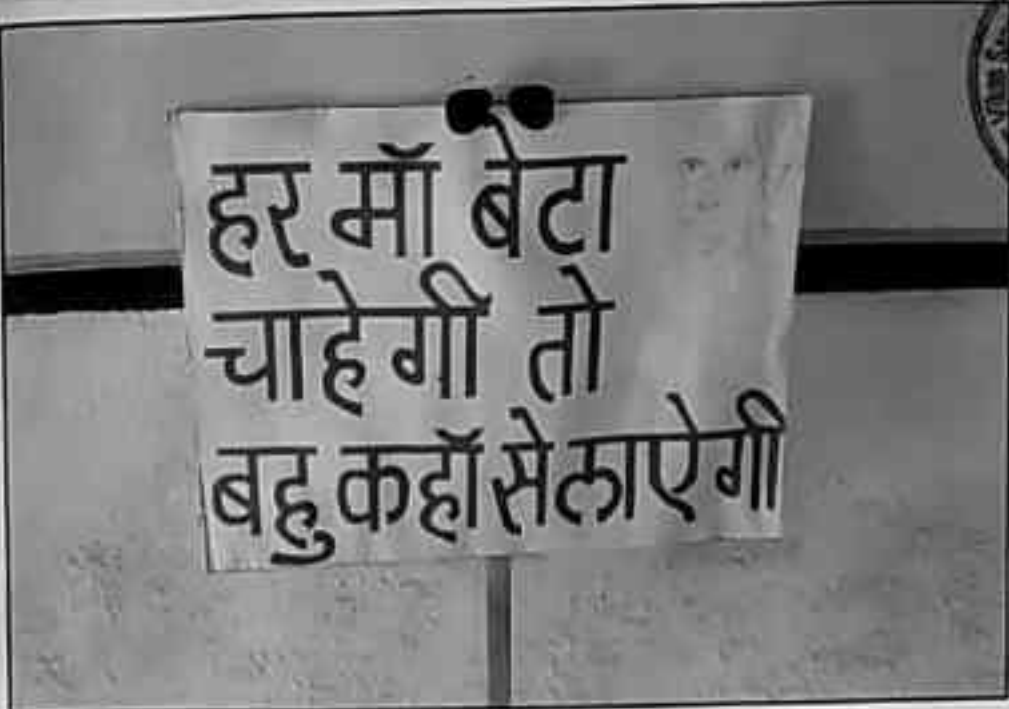 हर मॉ बेटा
चाहेगी तो
बहु कहॉ से लाऐगी